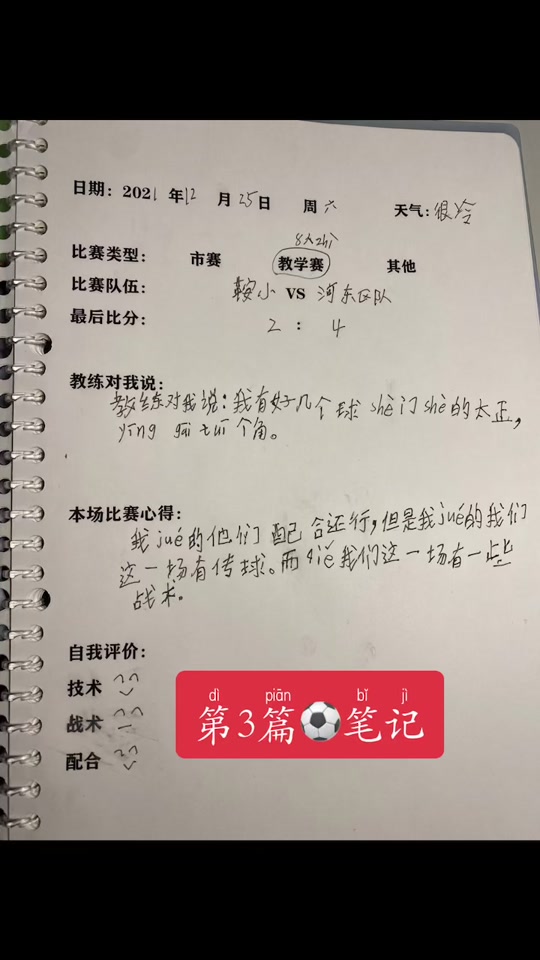 日期：2021 年12 月25日 周六 天气：很冷
8人zhì
比赛类型： 市赛 教学赛 其他
比赛队伍： 鞍小 VS 河东区队
最后比分： 2 : 4
教练对我说：
教练对我说：我有好几个球shè门shè的太正，
yīng gāi tuī个角。
本场比赛心得：
我jué的他们配合还行，但是我jué的我们
这一场有传球。而qiě我们这一场有一些
战术。
自我评价：
技术
战术
配合
dì piān bǐ jì
第3篇⚽笔记